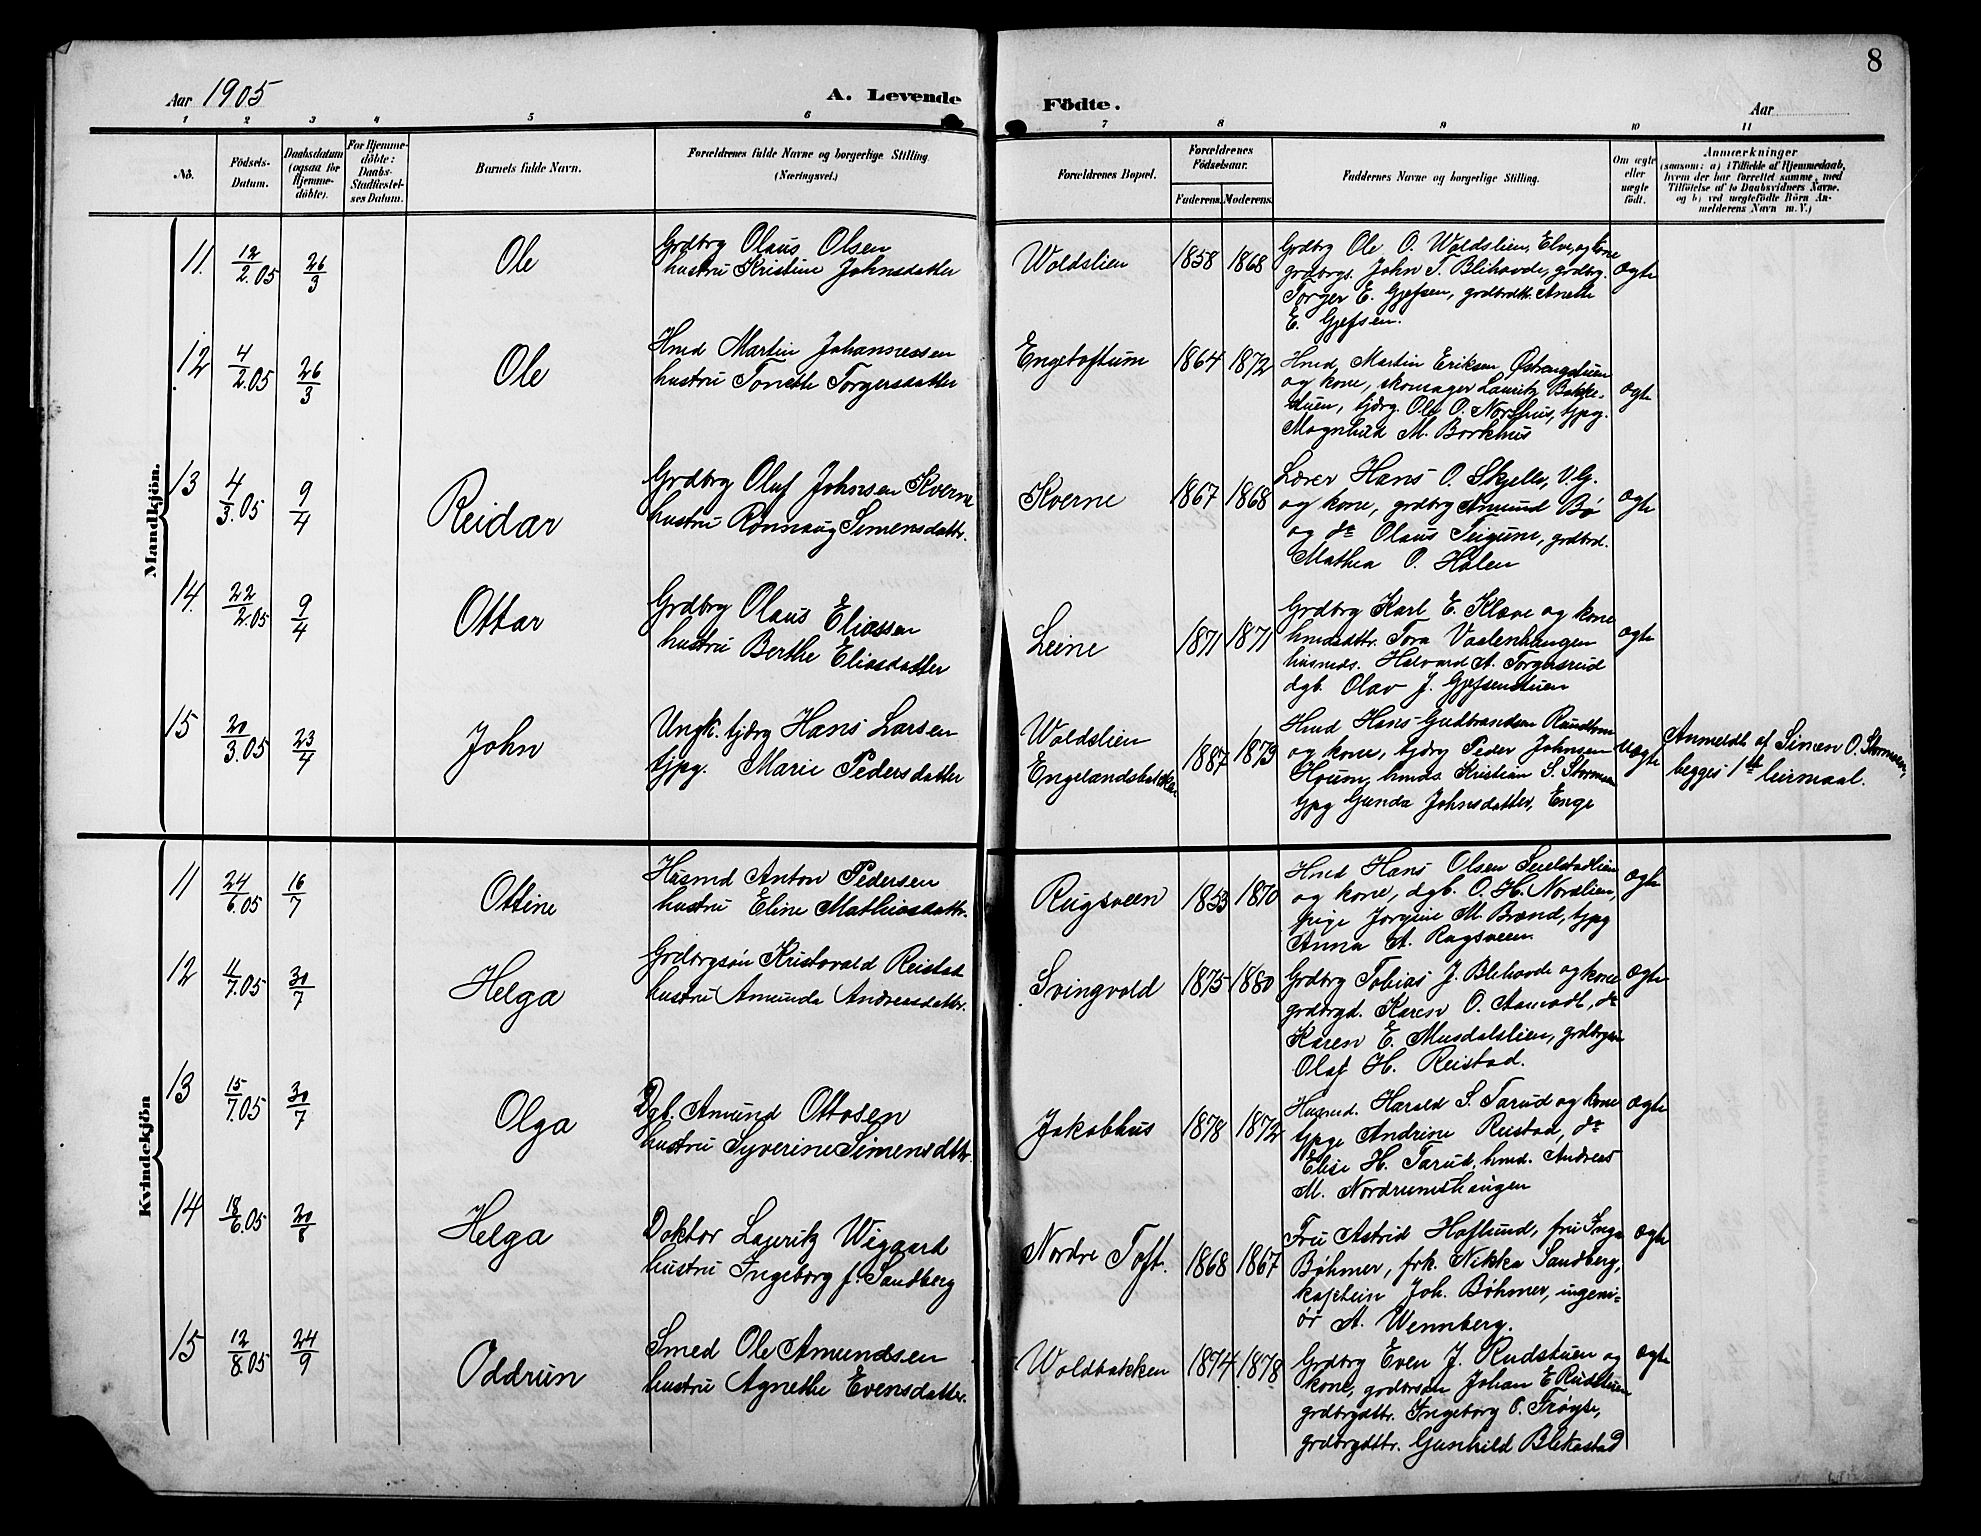 8
Aar 1905
A. Levende Födte.
Aar
1 2 3 4 5 6 7 8 9 10 11
No.
Födsels-Datum.
Daabsdatum (ogsaa for Hjemme-döbte).
For Hjemme-döbte: Daabs-Stadfæstel-ses Datum.
Barnets fulde Navn.
Forældrenes fulde Navne og borgerlige Stilling.
(Næringsvei.)
Forældrenes Bopæl.
Forældrenes Födselsaar.
Faderens. Moderens.
Faddernes Navne og borgerlige Stilling.
Om ægte eller uægte födt.
Anmærkninger
(saasom: a) i Tilfælde af Hjemmedaab,
hvem der har forrettet samme, med
Tilföielse af to Daabsvidners Navne,
og b) ved uægtefödte Börn An-
melderens Navn m. V.)
Mandkjön.
11. 12/2.05 26/3 Ole
Grdbrg Olaus Olsen
hustru Kristine Johnsdatter
Woldslien 1858 1868
Grdbrg Ole O. Woldslien, Elve, og kone
grdbrgs. John T. Blihovde, grdbrg.
Torger E. Gjefsen, grdbrdtr. Anette
E. Gjefsen.
ægte
12 4/2.05 26/3 Ole
Hmd Martin Johannessen
hustru Tonette Torgersdatter
Engetoftum 1864 1872
Hmd Martin Eriksen Østengstuen
og kone, skomager Lauritz Bakke-
stuen, tjdrg. Ole O. Norshus, tjpg.
Magnhild M. Borkhus
ægte
13 4/3.05 9/4 Reidar
Grdbrg Oluf Johnsen Kverne
hustru Rønnaug Simensdattr.
Kverne 1867 1868
Lærer Hans O. Skjelle, V.G.
og kone, grdbrg Amund Bø
og do Olaus Teigum, grdbrd.
Mathea O. Holen
ægte
14. 22/2.05 9/4 Ottar
Grdbrg Olaus Eliassen
hustru Berthe Eliasdatter
Leine 1871 1871
Grdbrg Karl E. Kleve og kone
hmdsdttr. Tora Vaalenhaugen
husmds. Halvard A. Torgersrud
dgb. Olav J. Gjefsenstuen
ægte
15 20/3.05 23/4 John
Ungk. tjdrg Hans Larsen
tjpg. Marie Pedersdatter
Woldslien
Engelandsbakken 1887 1879
Hmd Hans Gudbrandsen Rundtom
og kone, tjdrg Peder Johnsen
Houm, hmds. Kristian S. Stormoen
tjpg Gunda Johnsdatter, Enge
uægte
Anmeldt af Simen O. Stormoen,
begges 1ste leirmaal.
Kvindekjön
11 24/6.05 16/7 Ottine
Husmd Anton Pedersen
hustru Eline Mathiasdattr.
Rugsveen 1853 1870
Hmd Hans Olsen Sveelstadlien
og kone, dgb. O. H. Nordlien,
pige Jørgine M. Brænd, tjpg
Anna A. Rugsveen.
ægte
12 4/7.05 30/7 Helga
Grdbrgsøn Kristovald Reistad
hustru Amunda Andreasdattr.
Svingvold 1875 1880
Grdbrg Tobias J. Blihovde og kone
grdbrgd. Karen O. Aamodt, do
Karen E. Musdalslien, grdbrgsøn
Olaf H. Reistad.
ægte
13 15/7.05 30/7 Olga
Dgb. Amund Ottosen
hustru Syverine Simensdttr.
Jakobhus 1878 1872
Husmd. Harald S. Tarud og kone
tjpge Andrine Rustad, do
Elise H. Tarud, hmd. Andreas
M. Nordrumshaugen
ægte
14 18/6.05 20/8 Helga
Doktor Lauritz Wiggard
hustru Ingeborg f. Sandberg
Nordre Toft. 1868 1867
Fru Astrid Haflund, fru Inga
Bøhmer, frk. Nikka Sandberg,
kaptein Joh. Bøhmer, ingeni-
ør A. Wennberg.
ægte
15 12/8.05 24/9 Oddrun
Smed Ole Amundsen
hustru Agnethe Evensdatter.
Woldbakken 1874 1878
Grdbrg Even J. Rudstuen og
kone, grdbrsøn Johan E. Rudstuen
grdbrgdttr. Ingeborg O. Frøyse,
grdbrgdttr. Gunhild Blekastad
ægte